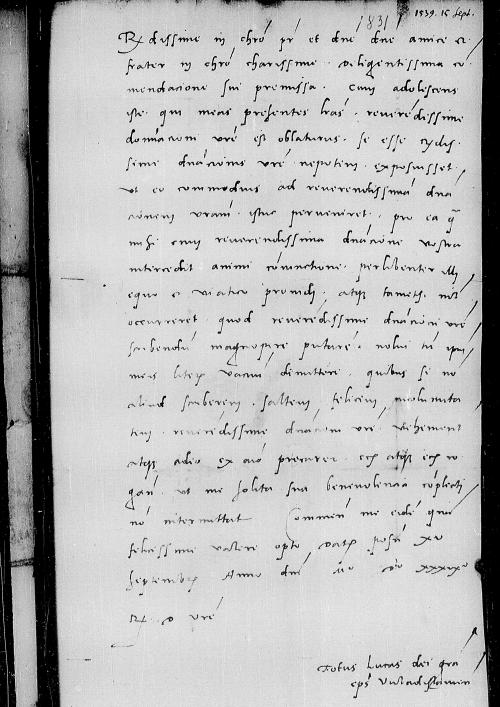 1831
1539. 15 Sept.
R̄dissime in chro pr et dne dne amice et
frater in chro charissime . diligentissima co
mendacione sui premissa . Cum adolescens
iste qui meas presentes lras reverēdissime
dominacioni vre est oblaturus . se esse ejus-
sime dnacionis vre nepotem exposuisset
ut eo commodius ad reverendissimā dna
cionem vram istuc perveniret . pro ea q̄
mihi cum reverendissima dnacione vostra
intercedit animi coniunctione . perlibenter illi
equo et viatico providi . atq̄ tametsi nihil
occurreret . quod reverēdissime dnacioni vre
scribendū magnopere putarē . nolui tn ipm
meis literis vacuū dimittere . quibus si no
aliud scriberem . saltem felicem incolumita
tem reverēdissime dnacioni vre vehementer
atq̄ adeo ex aīo precarer . eā atq̄ eā ro
gans ut me solita sua benevolencia cōplecti
nō intermittat Commen me eidē quā
felicissime valere opto Dat posn xv
Septembris Anno dni Mo Do xxxixo
R̄. D vre
Totus Lucas dei gra
eps Vuladislavien